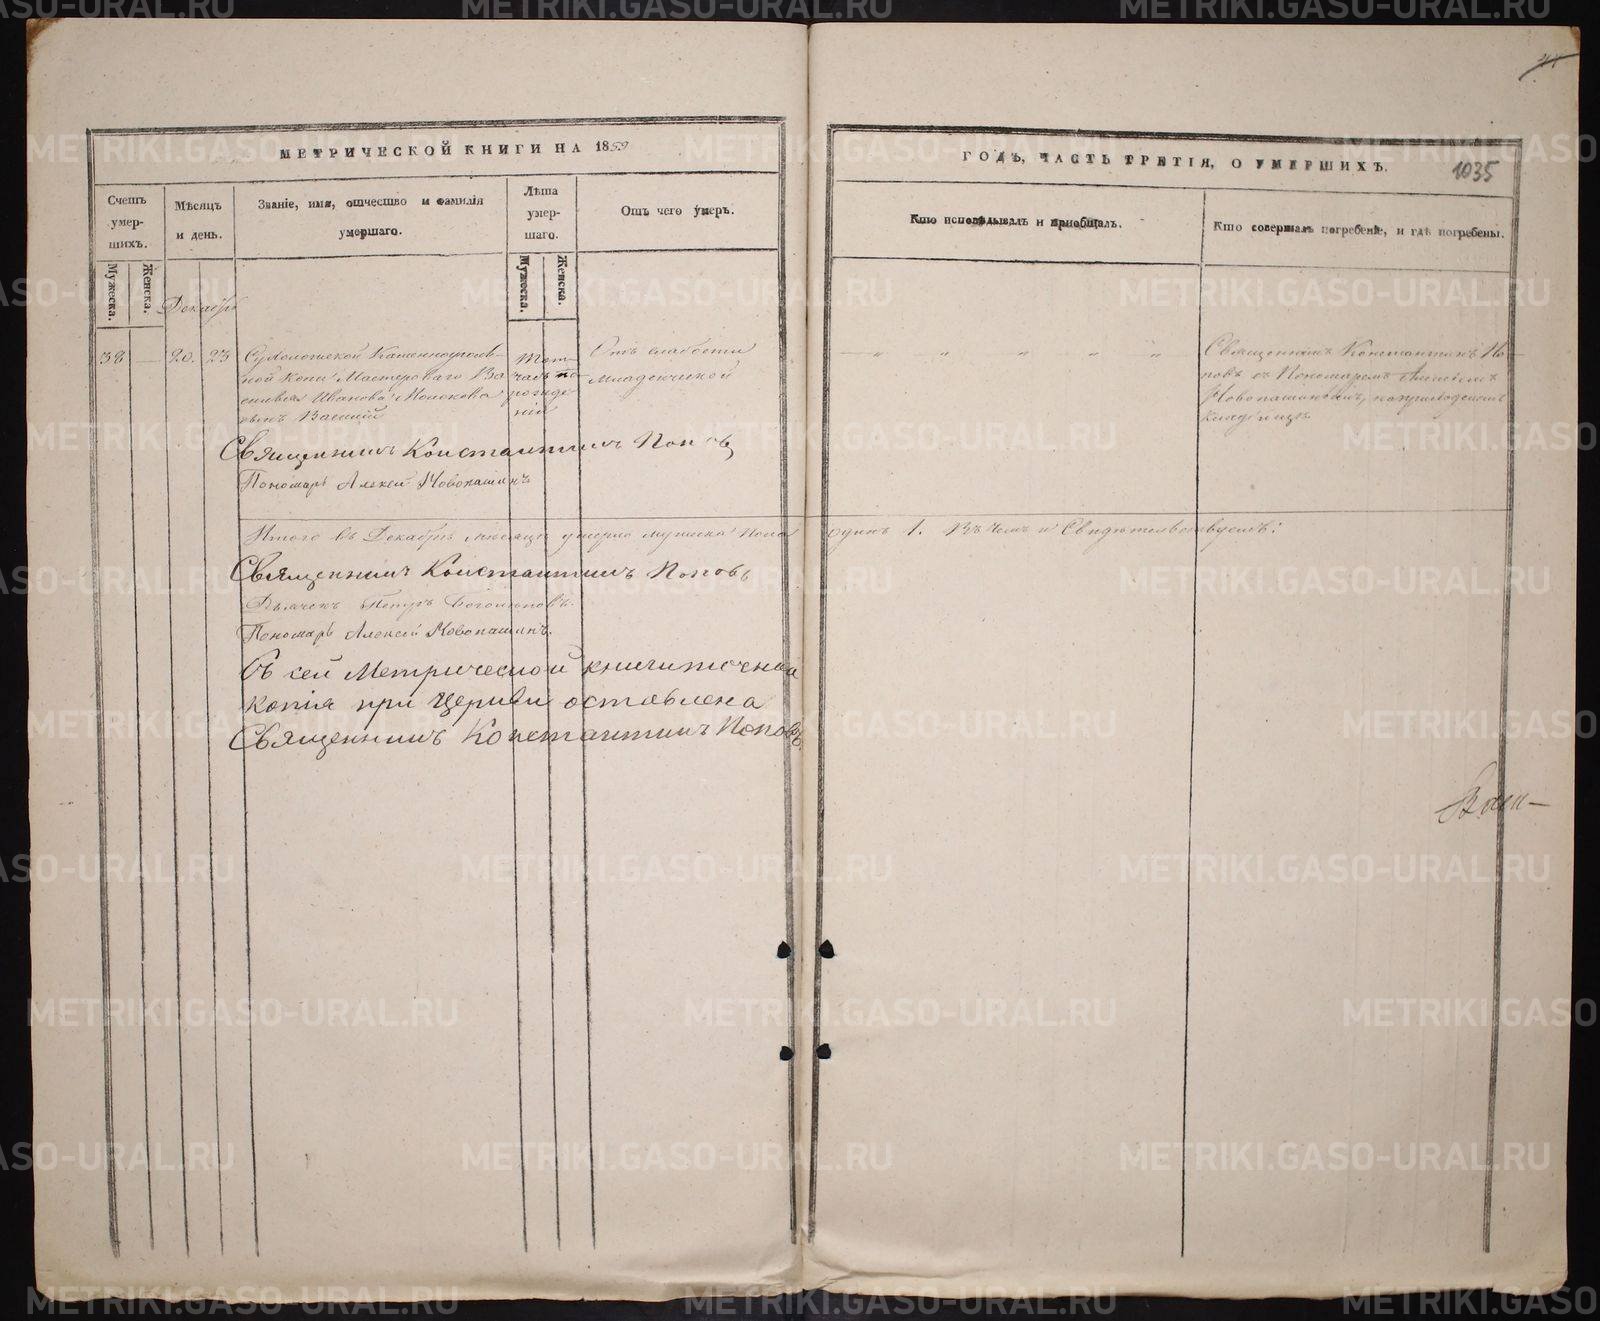 МЕТРИЧЕСКОЙ КНИГИ НА 1859
ГОДЪ, ЧАСТЬ ТРЕТІЯ, О УМЕРШИХЪ.
1035
Счетъ умер-шихъ.
Мѣсяцъ и день.
Званіе, имя, отчество и фамилія умершаго.
Лѣта умер-шаго.
Отъ чего умеръ.
Кто исповѣдывалъ и пріобщалъ.
Кто совершалъ погребеніе, и гдѣ погребены.
Мужеска.
Женска.
Мужеска.
Женска.
Декабрь
38 — 20. 23
Сухоложской Каменноуголь-
ной Копи Мастероваго Ва
сильева Иванова Молокова
сынъ Василій
рожде
нія
Отъ слабости
младенческой
Священникъ Константинъ По-
повъ съ Пономаремъ Алексіемъ
Новопашинымъ, на приходскомъ
кладбищѣ
Священникъ Константинъ Поповъ
Пономарь Алексей Новопашинъ
Итого въ Декабрѣ месяцѣ умерло мужеска пола одинъ 1. Въ чемъ и Свидѣтельствуемъ:
Священникъ Константинъ Поповъ
Дьячекъ Петръ Боголюповъ.
Пономарь Алексей Новопашинъ.
Съ сей Метрической книги точная
копія при Церкви оставлена
Священникъ Константинъ Поповъ
METRIKI.GASO-URAL.RU